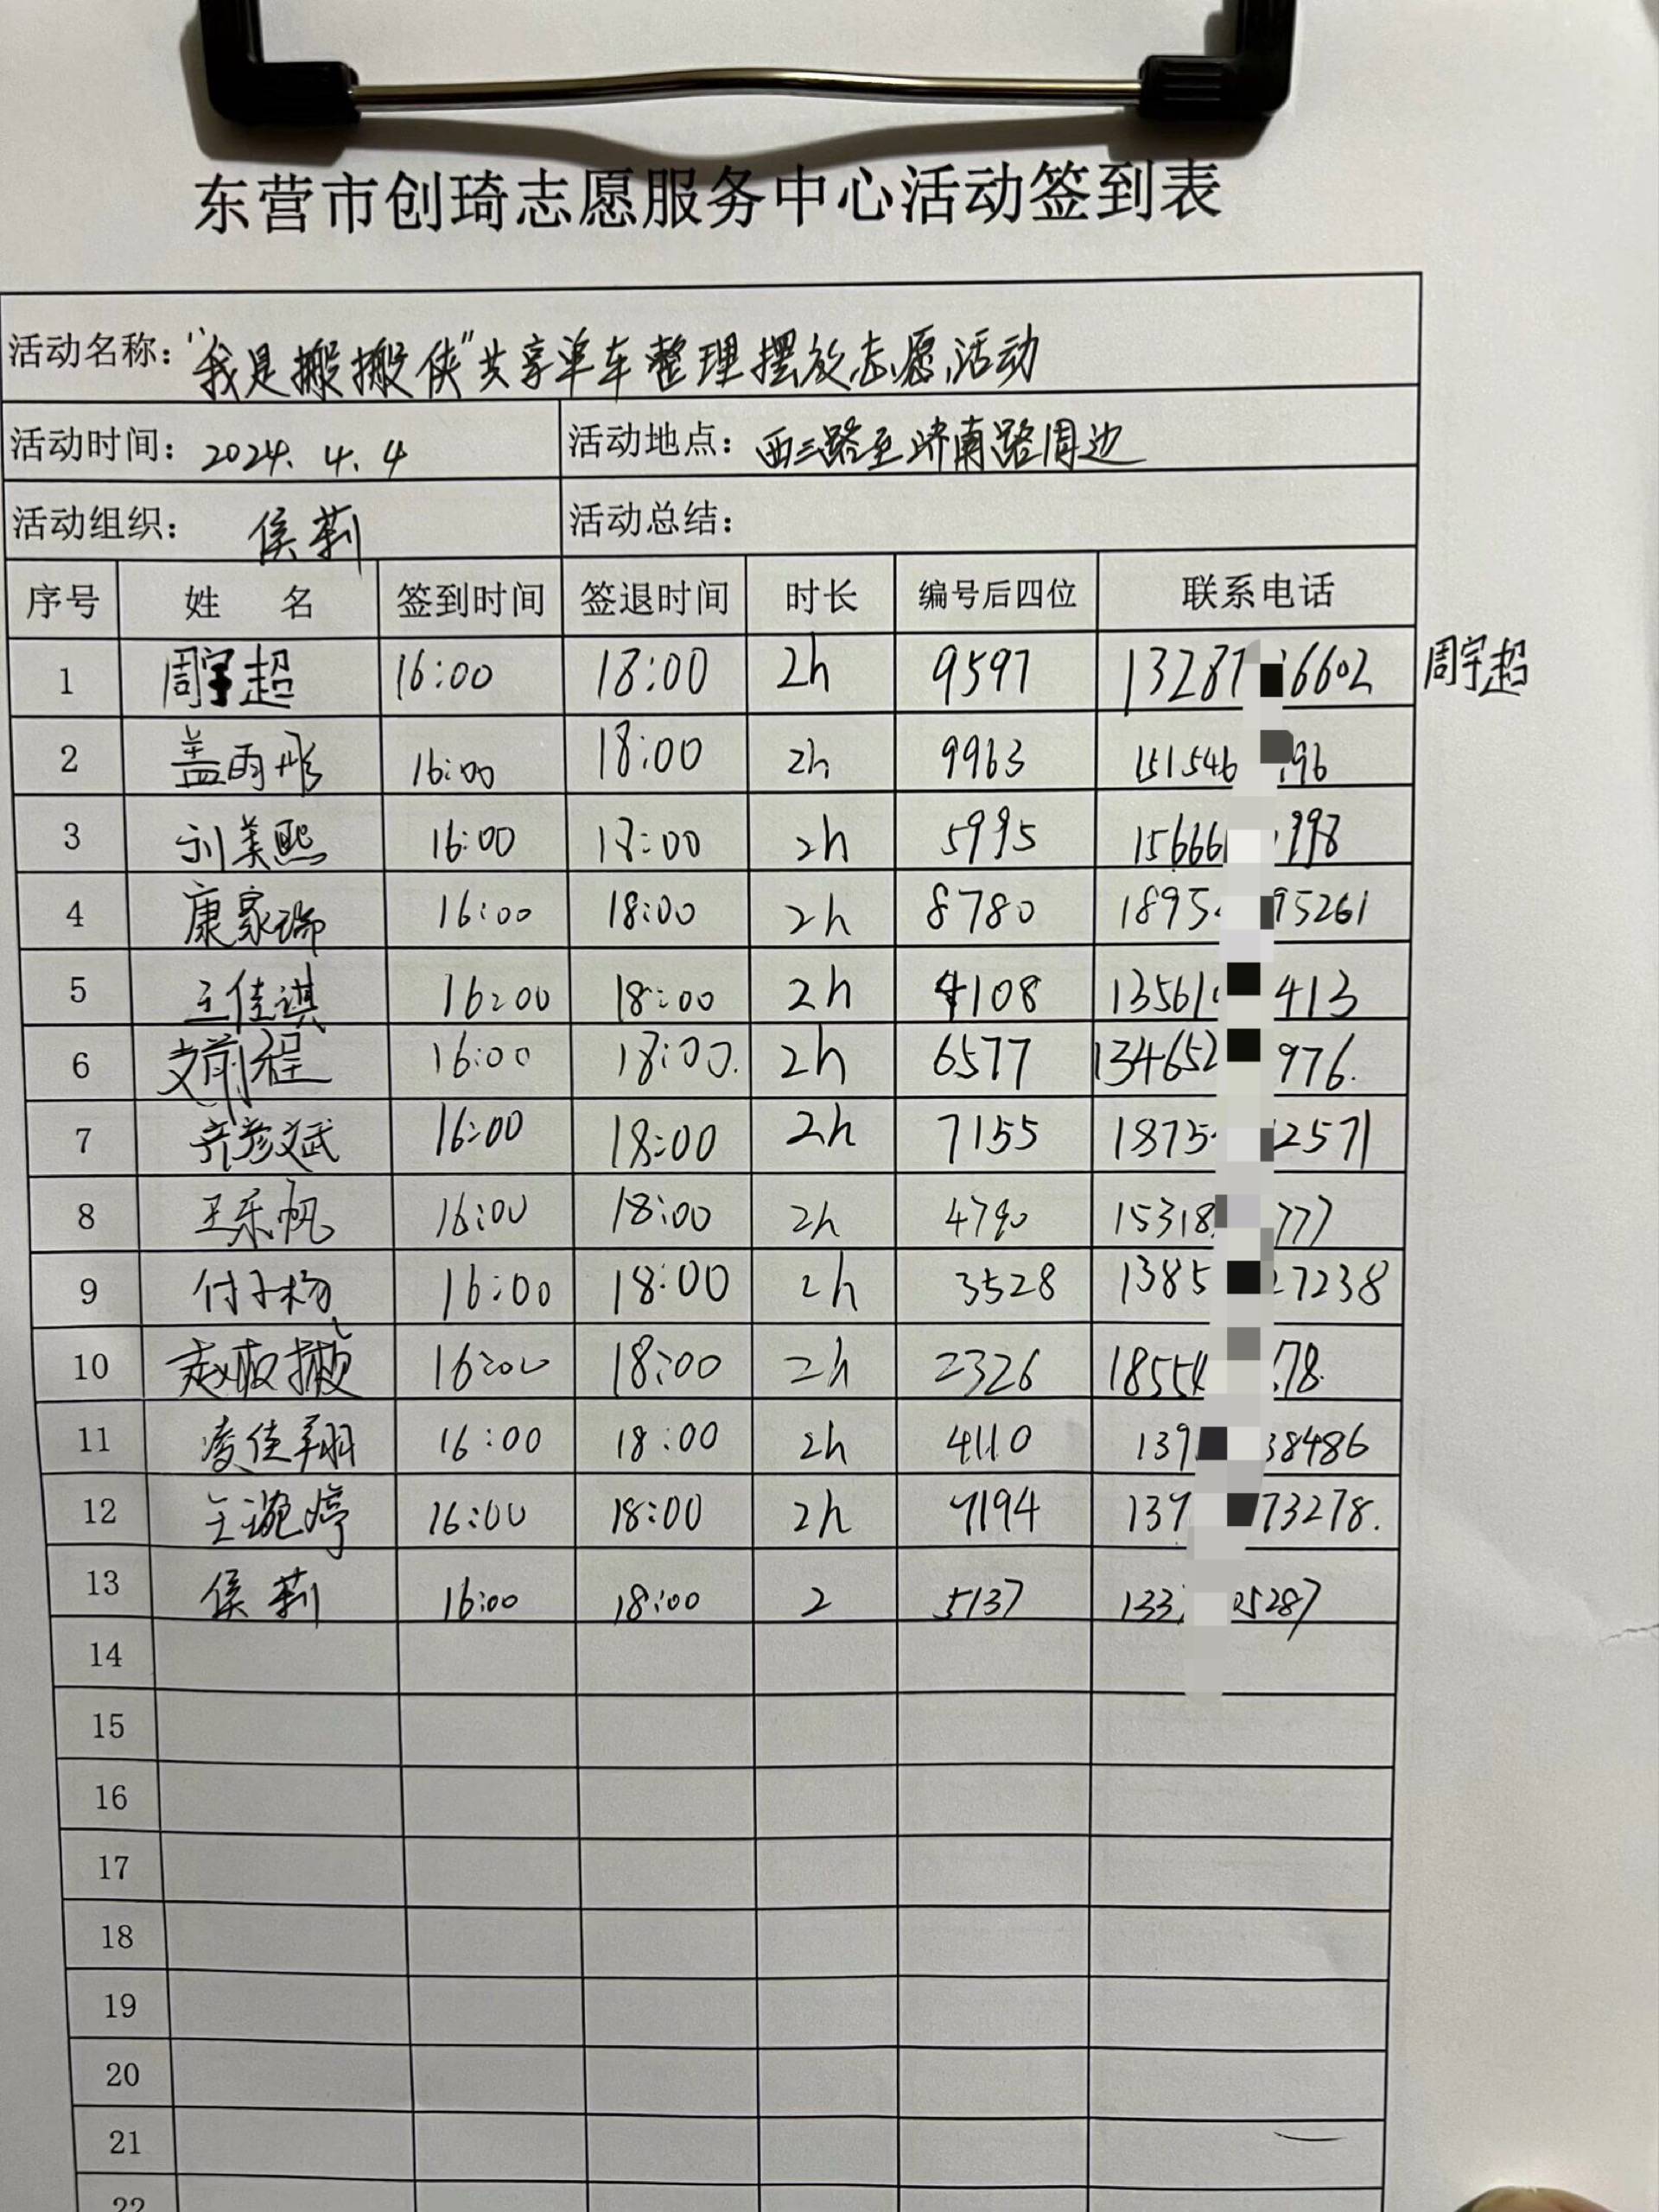 东营市创琦志愿服务中心活动签到表
活动名称："我是搬搬侠"共享单车整理摆放志愿活动
活动时间：2024.4.4 活动地点：西三路至济南路周边
活动组织：侯莉 活动总结：
序号 姓名 签到时间 签退时间 时长 编号后四位 联系电话
1 周宇超 16:00 18:00 2h 9597 13287 6602 周宇超
2 盖雨彤 16:00 18:00 2h 9963 151546 96
3 刘美熙 16:00 18:00 2h 5995 15666 998
4 康家瑞 16:00 18:00 2h 8780 1895 95261
5 王佳琪 16:00 18:00 2h 4108 13561 413
6 文前程 16:00 18:00. 2h 6577 134652 976.
7 齐彦斌 16:00 18:00 2h 7155 1875 2571
8 王乐帆 16:00 18:00 2h 4790 15318 777
9 付子杨 16:00 18:00 2h 3528 1385 7238
10 赵 16:00 18:00 2h 2326 1855 78.
11 凌佳翔 16:00 18:00 2h 4110 139 38486
12 王琬婷 16:00 18:00 2h 7194 137 73278.
13 侯莉 16:00 18:00 2 5137 133 5287
14
15
16
17
18
19
20
21
22